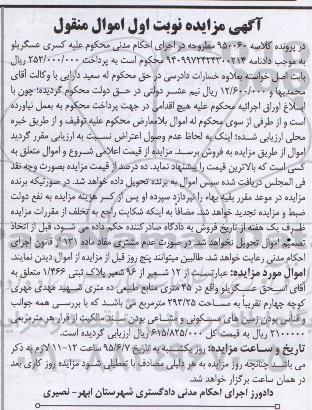 آگهی مزایده نوبت اول اموال منقول
در پرونده کلاسه ۹۵۰۰۶۰ مطروحه در اجرای احکام مدنی محکوم علیه کسری عسگریلو
به موجب دادنامه ۹۴۰۹۹۷۲۴۲۴۳۰۰۲۱۴ محکوم است به پرداخت ۲۵۲/۰۰۰/۰۰۰ ریال
بابت اصل خواسته بعلاوه خسارات دادرسی در حق محکوم له سعید دارایی با وکالت آقای
محمدبها و ۱۲/۶۰۰/۰۰۰ ریال نیم عشر دولتی در حق دولت محکوم گردیده؛ چون با
ابلاغ اوراق اجرائیه محکوم علیه هیچ اقدامی در جهت پرداخت محکوم به بعمل نیاورده
است و از طرفی از سوی محکوم له اموال بلامعارض محکوم علیه توقیف و از طریق خبره
محلی ارزیابی شده؛ اینک به لحاظ عدم وصول اعتراض نسبت به ارزیابی مقرر گردید
اموال از طریق مزایده به فروش برسد. مزایده از قیمت اعلامی شروع و اموال متعلق به
کسی است که بالاترین قیمت را پیشنهاد نماید. ده درصد از قیمت مزایده بصورت وجه نقد
فی المجلس دریافت شده سپس اموال به برنده تحویل داده خواهد شد. در صورتیکه برنده
مزایده در موعد مقرر بقیه بهاء را نپردازد سپرده او پس از کسر هزینه مزایده به نفع دولت
ضبط و مزایده تجدید خواهد شد. مضافا به اینکه شکایت راجع به تخلف از مقررات مزایده
ظرف یک هفته از تاریخ فروش به دادگاه صادر کننده حکم داده می شود، قبل از اتخاذ
تصمیم اموال تحویل نخواهد شد. در صورت عدم مشتری مفاد ماده ۱۳۱ از قانون اجرای
احکام مدنی رعایت خواهد شد. طالبین میتوانند پنج روز قبل از مزایده از اموال دیدن نمایند.
اموال مورد مزایده: عبارتست از ۱۲ شعیر از ۹۶ شعیر پلاک ثبتی ۱/۴۶۶ متعلق به
آقای اسحق عسگریلو واقع در ۴۵ متری منابع طبیعی ده متری شهید مهدی مهری
کوچه چهارم تقریباً به مساحت ۲۹۳/۲۵ مترمربع می باشد که با بررسی همه جوانب
و قناس بودن زمین های مسکونی و مشاعی بودن سند مالکیت از قرار هر مترمربعی
۲۱۰۰۰۰۰ ریال به قیمت کل ۶۱۵/۸۲۵/۰۰۰ ریال ارزیابی گردیده است.
تاریخ و ساعت مزایده: روز یکشنبه به تاریخ ۹۵/۶/۷ ساعت ۱۲-۱۱ لازم به ذکر
می باشد چنانچه روز مزایده به هر دلیلی مصادف با تعطیلی شود مزایده روز کاری بعد
در همان ساعت برگزار خواهد شد.
دادورز اجرای احکام مدنی دادگستری شهرستان ابهر- نصیری